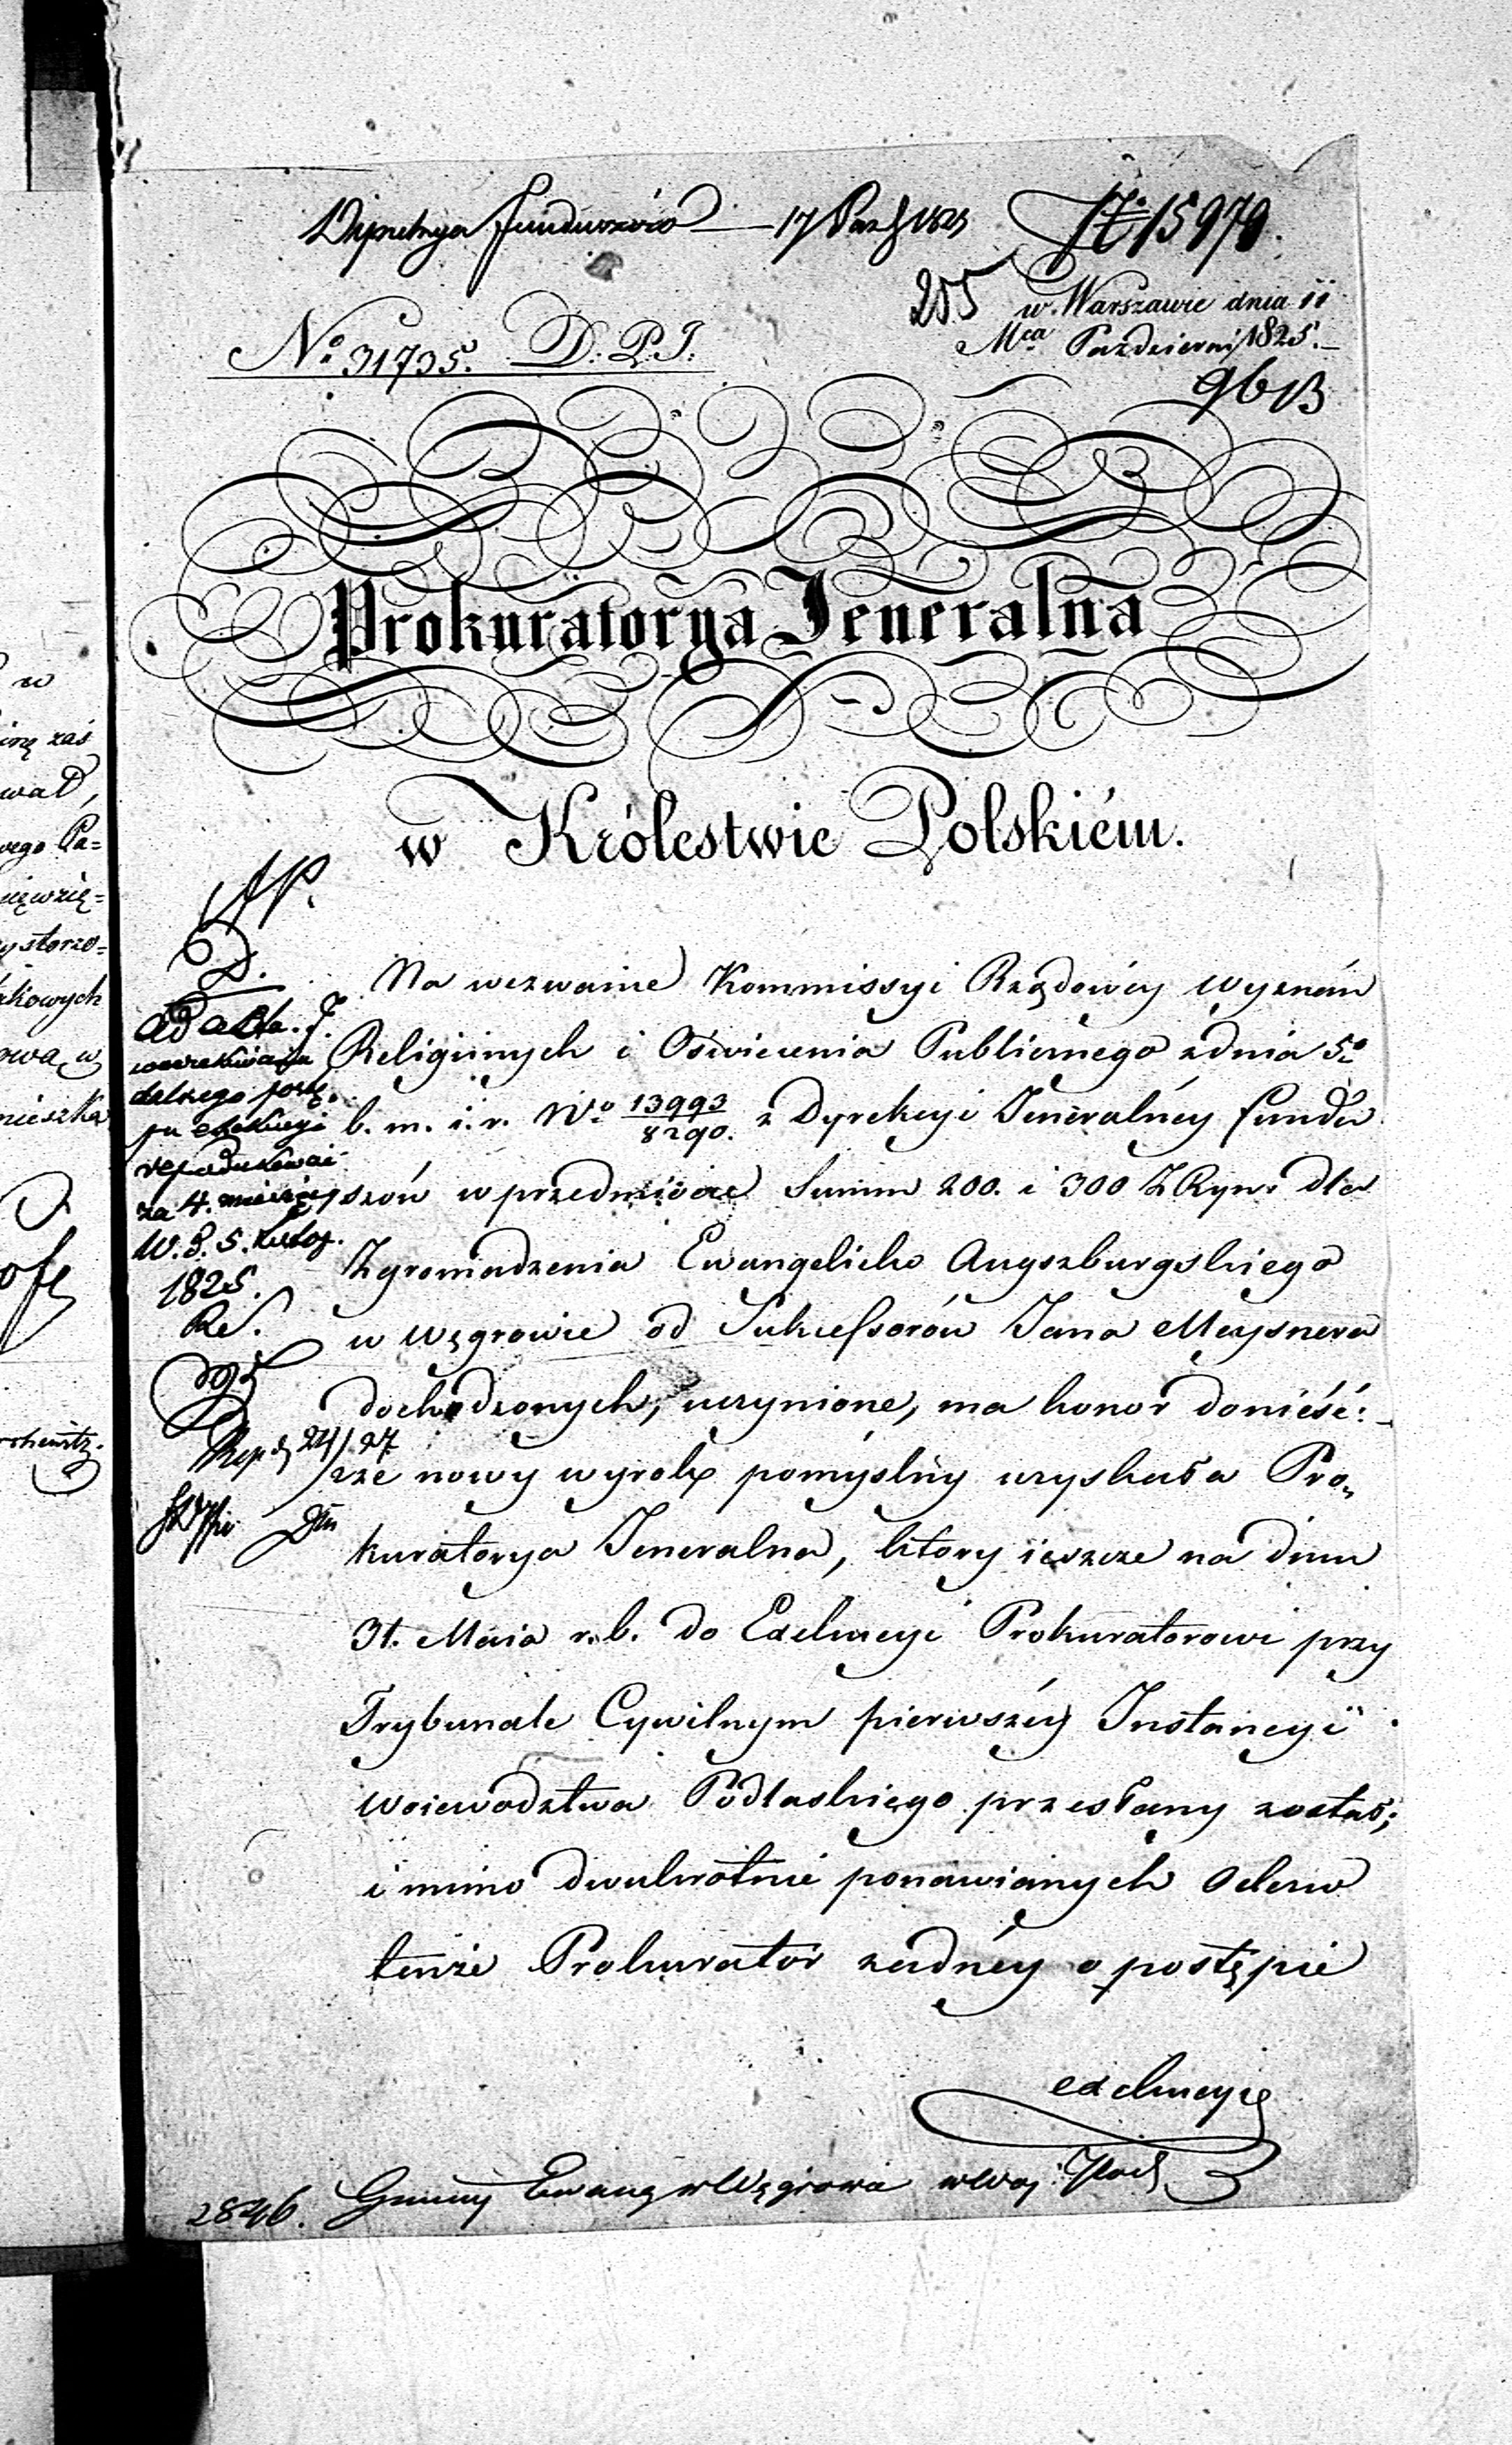 Dyrekcya Funduszów — 17 Paz 1825 N. 15979.
255 w Warszawie dnia 11
Mca Październi 1825.
No 31735. D: P. J.
96
Prokuratorya Jeneralna
w Królestwie Polskiém.
Na wezwanie Kommissyi Rządowéy Wyznań
Religiinych i Oświecenia Publicznego z dnia 5o
b. m. i. r. No 13993/8290. z Dyrekcyi Jeneralnéy fundu
szów w przedmiocie Summ 200. i 300 Z Ryn: dla
Zgromadzenia Ewangelicko Augszburgskiego
w Węgrowie od Sukcessorów Jana Meysnera
dochodzonych, uczynione, ma honor donieść:
że nowy wyrok pomyślny uzyskała Pro„
kuratorya Jeneralna, który ieszcze na dniu
31. Maia r. b. do Exekucyi Prokuratorowi przy
Trybunale Cywilnym pierwszéy Instancyi
Woiewództwa Podlaskiego przesłany został;
i mimo dwukrotnie ponawianych odezw
tenże Prokurator żadnéy o postępie
exekucyi
ad acta.
dalszego postę.
pu exekucyi
reprodukować
za 4. miesiące
W. d. 5. Listop.
1825.
24/27
2846. Gminy Ewang w Węgrowie w Woj: Podl